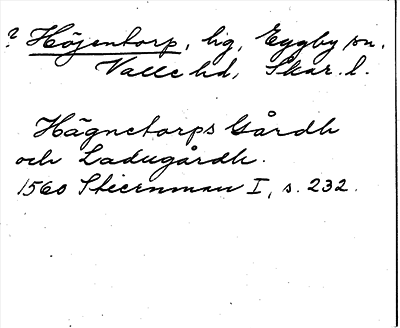 ? Höjentorp, hg, Eggby sn.
Valle hd, Skar. l.
Hägnetorps Gårdh
och Ladugårdh.
1560 Stiernman I, s. 232.